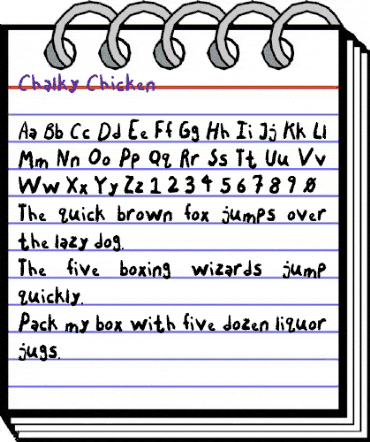 Chalky Chicken
Aa Bb Cc Dd Ee Ff Gg Hh Ii Jj Kk Ll
Mm Nn Oo Pp Qq Rr Ss Tt Uu Vv
Ww Xx Yy Zz 1 2 3 4 5 6 7 8 9 0
The quick brown fox jumps over
the lazy dog.
The five boxing wizards jump
quickly.
Pack my box with five dozen liquor
jugs.